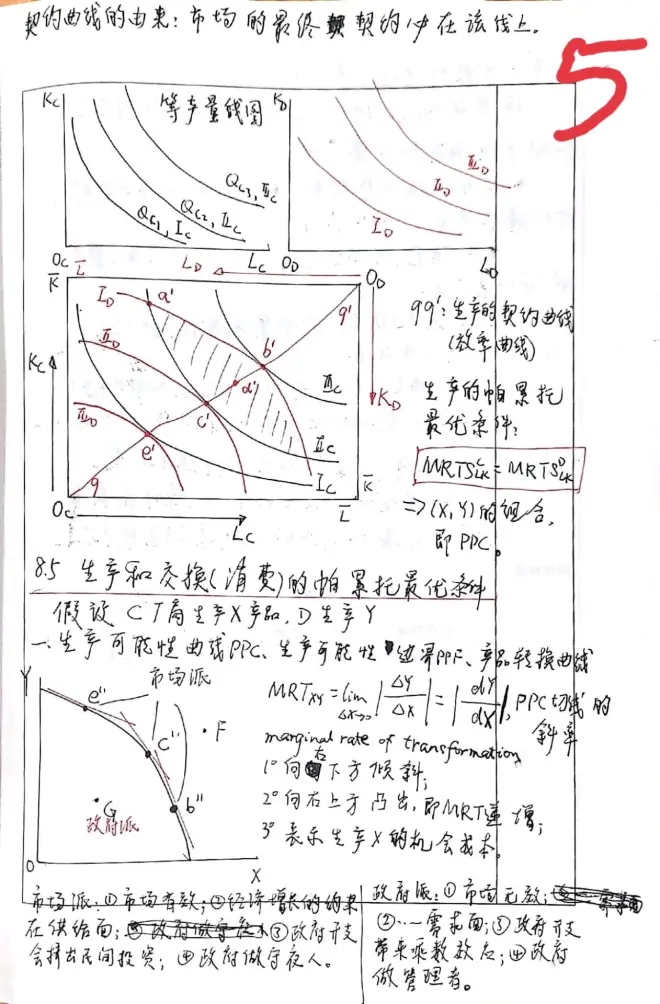 契约曲线的由来：市场的最终契约must在该线上。
5
等产量线图
K_C
Q_C3, Ⅲ_C
Q_C2, Ⅱ_C
Q_C1, I_C
O_C
L_C
K_D
Ⅲ_D
Ⅱ_D
I_D
O_D
L_D
K̄
L̄
L_D
O_D
I_D
a'
q'
Ⅱ_D
b'
K_C
Ⅲ_C
d'
K_D
c'
Ⅲ_D
e'
Ⅱ_C
I_C
q
K̄
O_C
L̄
L_C
qq'：生产的契约曲线
(效率曲线)
生产的帕累托
最优条件：
MRTS^C_LK = MRTS^D_LK
⇒(X,Y)的组合，
即PPC。
8.5 生产和交换(消费)的帕累托最优条件
假设C厂商生产X产品，D生产Y
一、生产可能性曲线PPC、生产可能性边界PPF、产品转换曲线
Y
市场派
e''
F
c''
G
b''
政府派
O
X
MRT_XY = lim_ΔX→0 |ΔY/ΔX| = |dY/dX|，PPC切线的
斜率
marginal rate of transformation
1° 向右下方倾斜；
2° 向右上方凸出，即MRT递增；
3° 表示生产X的机会成本。
市场派：①市场有效；②经济增长的约束
在供给面；③政府开支
会挤出民间投资；④政府做守夜人。
政府派：①市场无效；
②…需求面；③政府开支
带来乘数效应；④政府
做管理者。